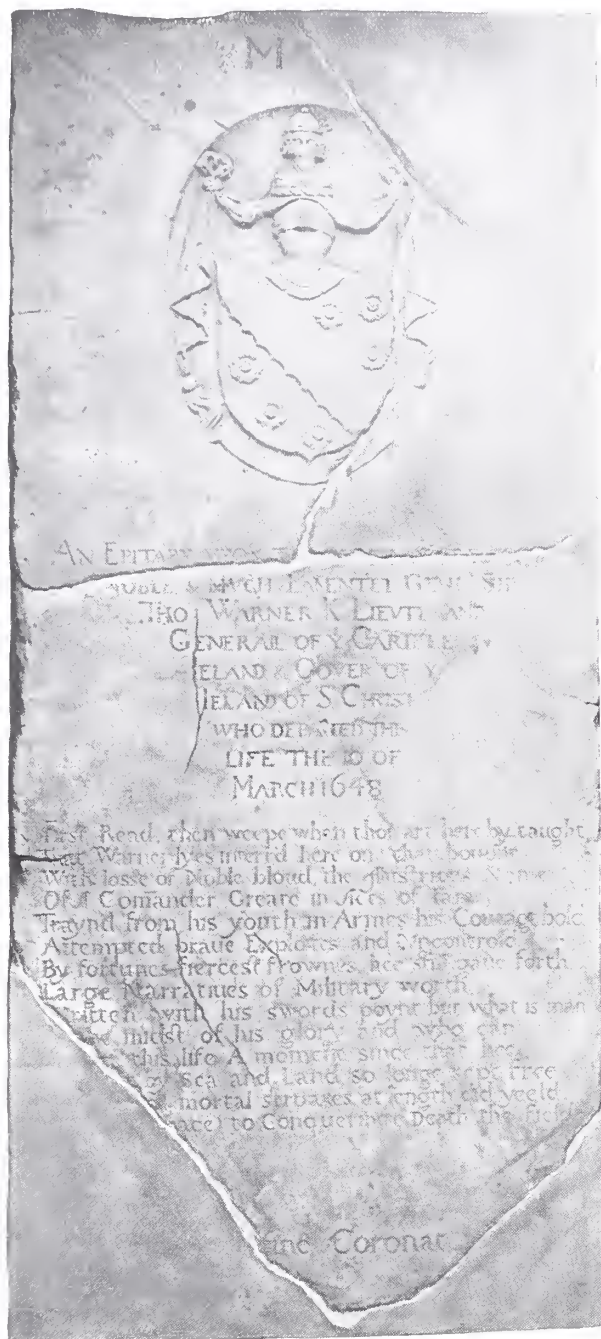 M
AN EPITAPH VPON T
NOBLE & MVCH LAMENTED GENL SIR
THO WARNER K LIEVTENANT
GENERALL OF Y CARIBEE
IELAND & GOVER OF Y
IELAND OF S CHRIST
WHO DEPARTED THIS
LIFE THE 10 OF
MARCH 1648
First Read, then weepe when thou art hereby taught
That Warner lyes interrd here one that bought
With losse of Noble bloud, the
Of A Comander Greate in Acts of Fame
Traynd from his youth in Armes his Courage bold
Attempted braue Exploites and Vncontrold
By fortunes fiercest frownes hee still gaue forth
Large Narratiues of Military worth
ritten with his swords poynt but what is man
midst of his glory and who can
this life A moment since that hee
Sea and Land so longe kept free
mortal stroakes at length did yeeld
ace) to Conqueringe Death the field
fine Coronat